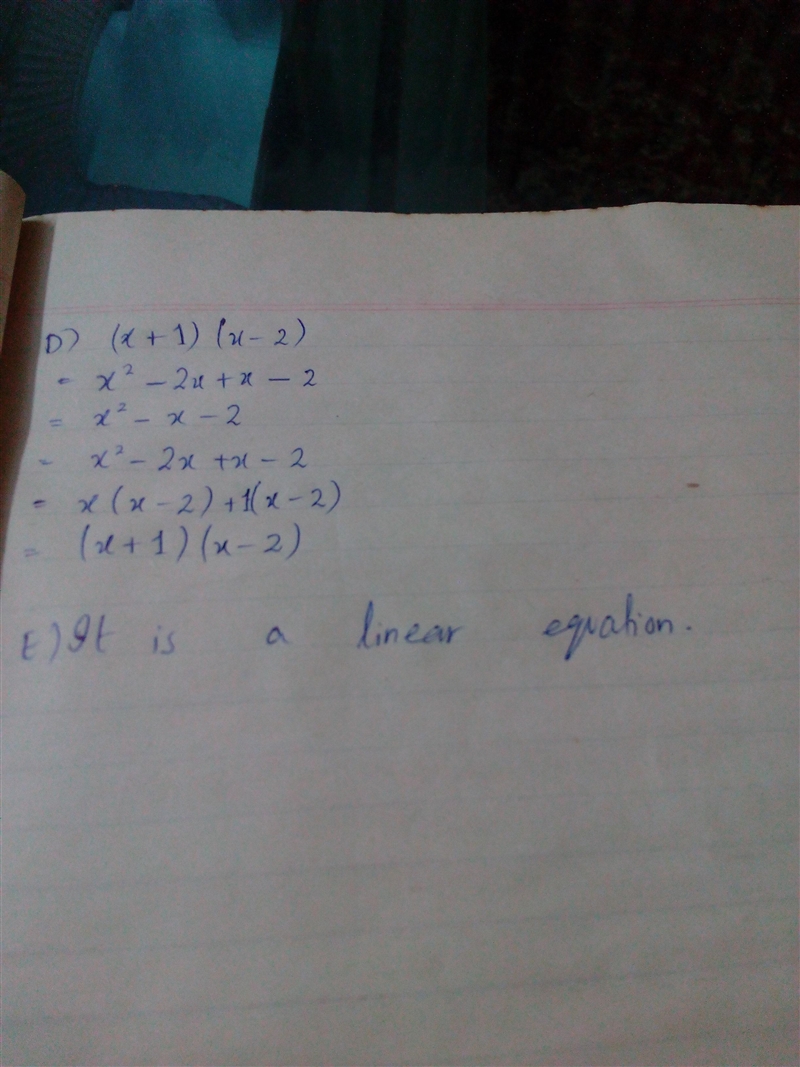 D) (x + 1) (x - 2)
= x² - 2x + x - 2
= x² - x - 2
= x² - 2x + x - 2
= x (x - 2) + 1(x - 2)
= (x + 1) (x - 2)
E) It is a linear equation.